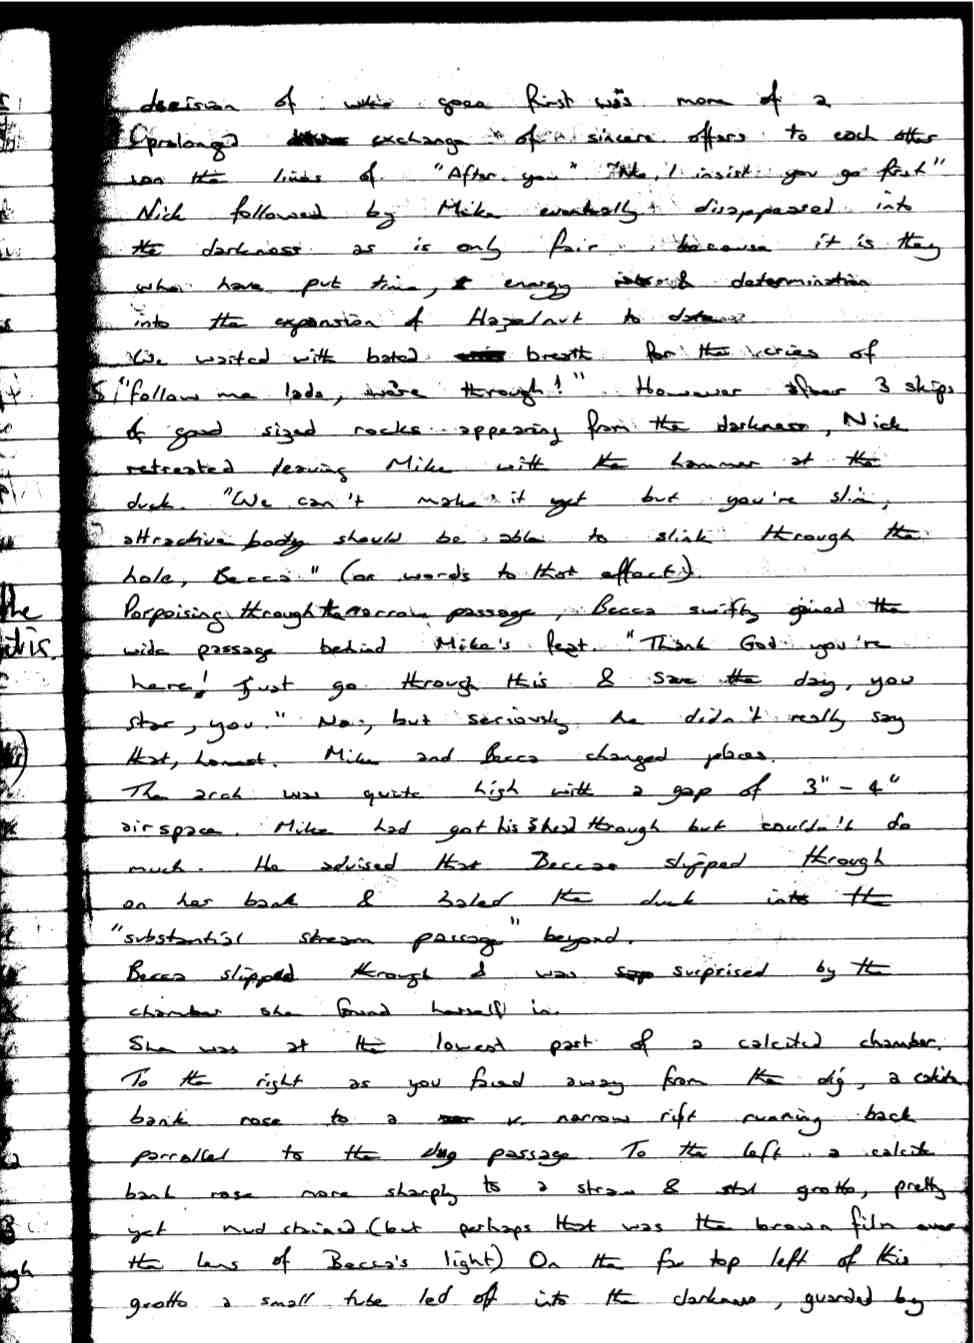 decision of who goes first was more of a
prolonged exchange of sincere offers to each other
on the lines of "After you" "No, I insist you go first"
Nick followed by Mike eventually disappeared into
the darkness as is only fair because it is they
who have put time, energy & determination
into the expansion of Hazelnut to date.
We waited with bated breath for the cries of
"follow me lads, we're through!" However after 3 skips
of good sized rocks appearing from the darkness, Nick
retreated leaving Mike with the hammer at the
duck. "We can't make it yet but you're slim,
attractive body should be able to slink through the
hole, Becca" (or words to that effect).
Porpoising through the narrow passage, Becca swiftly gained the
wide passage behind Mike's feet. "Thank God you're
here! Just go through this & save the day, you
star, you." No, but seriously he didn't really say
that, honest. Mike and Becca changed places.
The arch was quite high with a gap of 3" - 4"
airspace. Mike had got his head through but couldn't do
much. He advised that Becca slipped through
on her back & baled the duck into the
"substantial stream passage" beyond.
Becca slipped through & was surprised by the
chamber she found herself in.
She was at the lowest part of a calcited chamber.
To the right as you faced away from the dig, a calcite
bank rose to a v. narrow rift running back
parrallel to the dug passage. To the left a calcite
bank rose more sharply to a straw & stal grotto, pretty
yet mud stained (but perhaps that was the brown film over
the lens of Becca's light) On the far top left of this
grotto a small tube led off into the darkness, guarded by